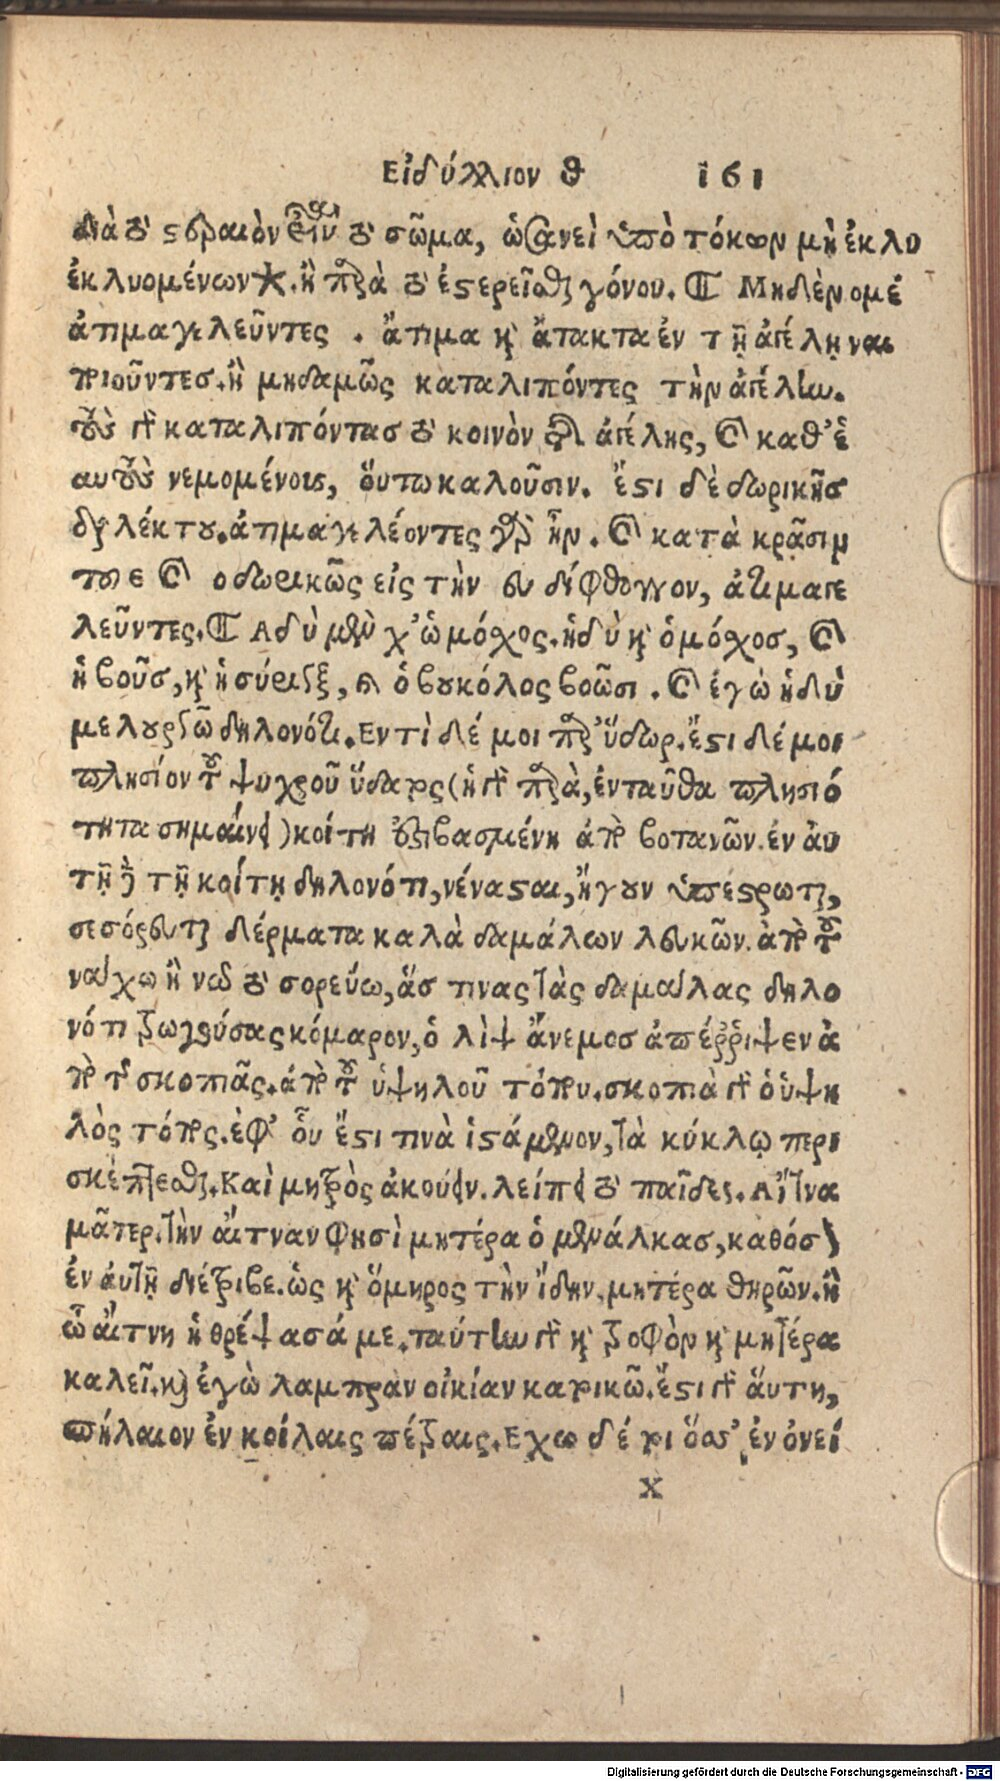 Εἰδύλλιον θ 161
διὰ τὸ στεβραιὸν εἶναι τὸ σῶμα, ὡσανεὶ ὑπὸ τόκων μὴ ἐκλυ
ἐκλυομένων. ἢ παρὰ τὸ ἐστερεῖσθαι γόνου. Μηδὲν ομέ
ἀτιμαγελεῦντες . ἄτιμα καὶ ἄτακτα ἐν τῇ ἀγέλῃ ναι
ποιοῦντεσ. ἢ μηδαμῶς καταλιπόντες τὴν ἀγέλην.
τοὺς γὰρ καταλιπόντασ τὸ κοινὸν τῆς ἀγέλης, καὶ καθ’ ἑ
αυτοὺς νεμομένους, ὅυτω καλοῦσιν. ἔστι δὲ δωρικῆσ
διαλέκτου. ἀτιμαγελέοντες γὰρ ἦν . καὶ κατὰ κρᾶσιν
του ε καὶ ο δωρικῶς εἰς τὴν ευ δίφθογγον, ἀτιμαγε
λεῦντες. Αδὺ μὲν χ’ ὡ μόχος. ἡδὺ καὶ ὁ μόχοσ, καὶ
ἡ βοῦσ, καὶ ἡ σύριγξ, καὶ ὁ βουκόλος βοῶσι . καὶ ἐγὼ ἡδὺ
μελουργῶ δηλονότι. Εντὶ δέ μοι παρ’ ὕδωρ. ἔστι δέ μοι
πλησίον τοῦ ψυχροῦ ὕδατος (ἡ γὰρ παρὰ, ἐνταῦθα πλησιό
τητα σημαίνει) κοίτη ἐστιβασμένη ἀπὸ βοτανῶν. ἐν ἀυ
τῇ δὲ τῇ κοίτῃ δηλονότι, νένασται, ἤγουν ὑπέστρωται,
σεσόρευται δέρματα καλὰ δαμάλεων λευκῶν. ἀπὸ τοῦ
νάχω ἢ νῶ τὸ σορεύω, ἅσ τινας τὰς δαμάλας δηλο
νότι τρωγούσας κόμαρον, ὁ λὶψ ἄνεμοσ ἀπέῤῥιψεν ἀ
πὸ τῆς σκοπιᾶς. ἀπὸ τοῦ ὑψηλοῦ τόπου. σκοπιὰ γὰρ ὁ ὑψη
λὸς τόπος. ἐφ’ οὗ ἔστι τινὰ ἱστάμενον, τὰ κύκλῳ περι
σκέπτεσθαι. Καὶ μητρὸς ἀκούειν. λείπει τὸ παῖδες. Αἴτνα
μᾶτερ. τὴν ἄιτναν φησὶ μητέρα ὁ μενάλκασ, καθόσον
ἐν ἀυτῇ διέτριβε. ὡς καὶ ὅμηρος τὴν ἴδην, μητέρα θηρῶν. ἢ
ὦ ἄιτνη ἡ θρέψασά με. ταύτην γὰρ καὶ τροφὸν καὶ μητέρα
καλεῖ. καὶ ἐγὼ λαμπρὰν οἰκίαν κατοικῶ. ἔστι γὰρ ἅυτη,
σπήλαιον ἐν κοίλαις πέτραις. Εχω δέ τοι ὅσσ’ ἐν ὀνεί
X
Digitalisierung gefördert durch die Deutsche Forschungsgemeinschaft - DFG